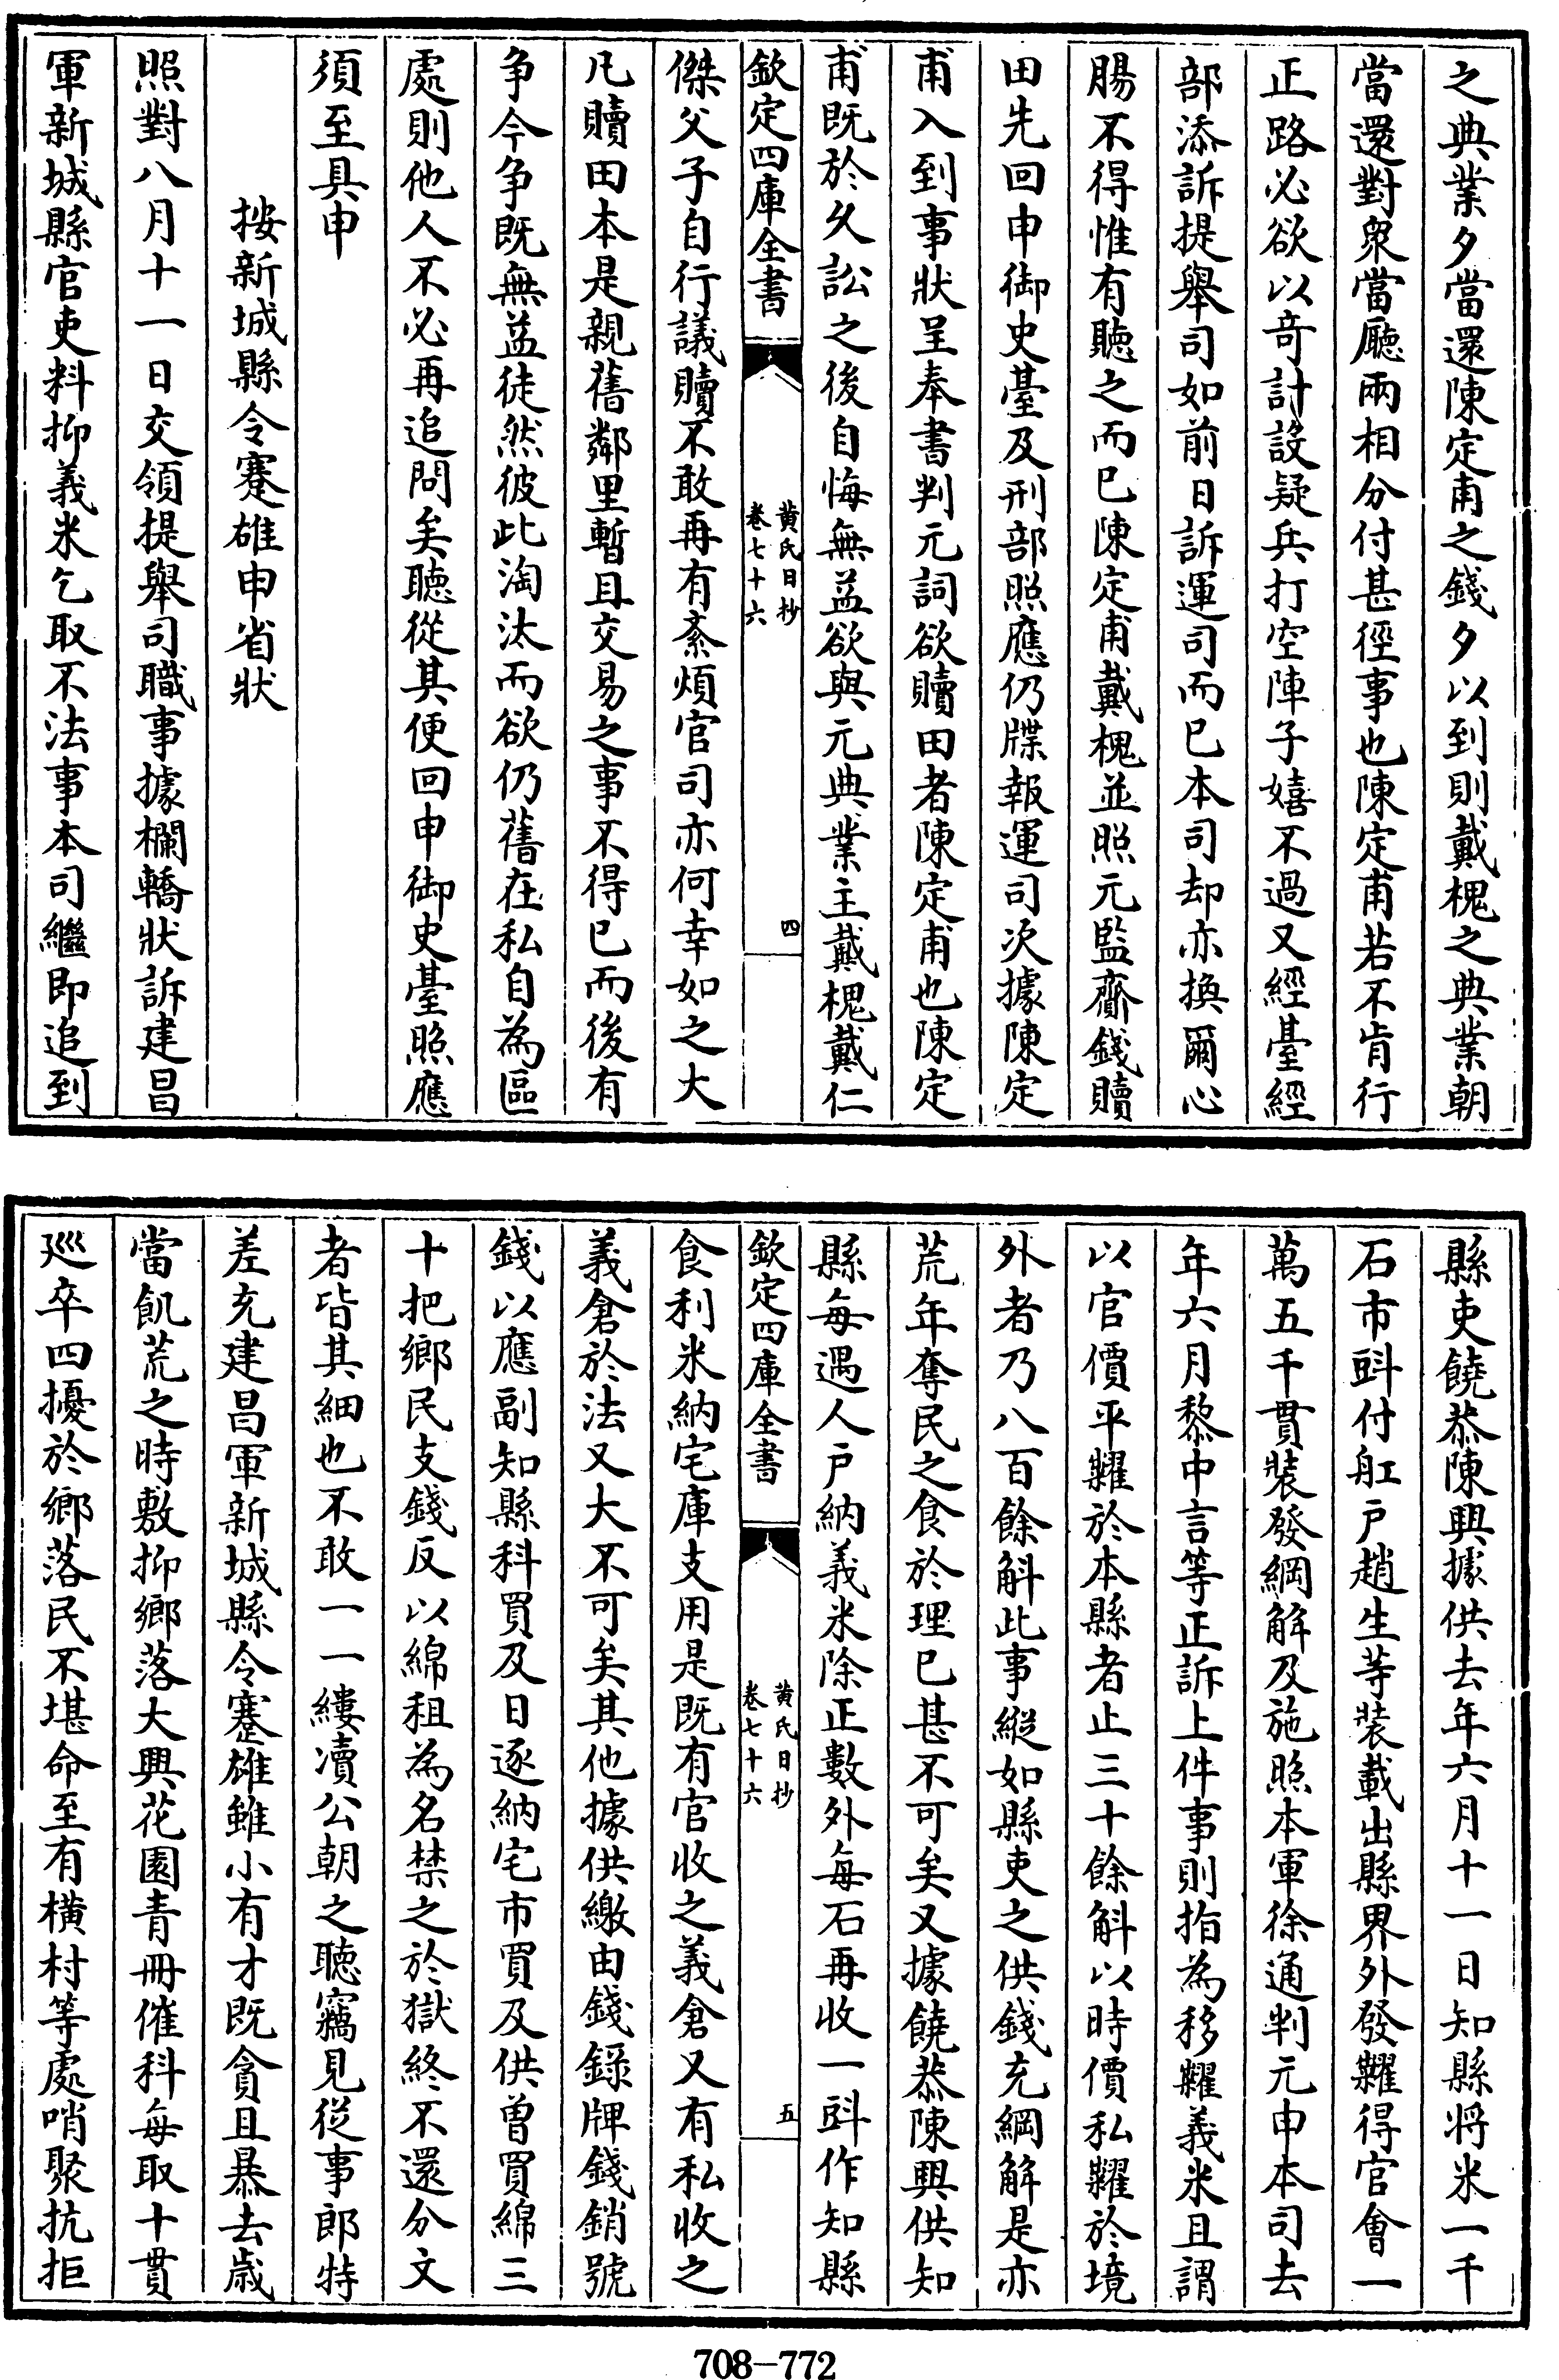 之典業夕當還陳定甫之錢夕以到則戴槐之典業朝
當還對衆當廳兩相分付甚徑事也陳定甫若不肯行
正路必欲以竒計設疑兵打空陣子嬉不過又經臺經
部添訴提舉司如前日訴運司而已本司却亦換爾心
腸不得惟有聽之而已陳定甫戴槐並照元監齎錢贖
田先回申御史臺及刑部照應仍牒報運司次據陳定
甫入到事狀呈奉書判元詞欲贖田者陳定甫也陳定
甫既於久訟之後自悔無益欲與元典業主戴槐戴仁
欽定四庫全書
黄氏日抄
卷七十六
四
傑父子自行議贖不敢再有紊煩官司亦何幸如之大
凡贖田本是親舊鄰里暫且交易之事不得已而後有
争今争既無益徒然彼此淘汰而欲仍舊在私自為區
處則他人不必再追問矣聽從其便回申御史臺照應
須至具申
按新城縣令蹇雄申省狀
照對八月十一日交領提舉司職事據欄轎狀訴建昌
軍新城縣官吏料抑義米乞取不法事本司繼即追到
縣吏饒恭陳興據供去年六月十一日知縣将米一千
石市㪷付舡戸趙生等装載出縣界外發糶得官會一
萬五千貫装發綱解及施照本軍徐通判元申本司去
年六月黎中言等正訴上件事則指為移糶義米且謂
以官價平糶於本縣者止三十餘斛以時價私糶於境
外者乃八百餘斛此事縱如縣吏之供錢充綱解是亦
荒年奪民之食於理已甚不可矣又據饒恭陳興供知
縣每遇人戸納義米除正數外每石再收一㪷作知縣
欽定四庫全書
黄氏日抄
卷七十六
五
食利米納宅庫支用是既有官收之義倉又有私收之
義倉於法又大不可矣其他據供繳由錢錄牌錢銷號
錢以應副知縣科買及日逐納宅市買及供曽買綿三
十把鄉民支錢反以綿租為名禁之於獄終不還分文
者皆其細也不敢一一縷凟公朝之聽竊見從事郎特
差充建昌軍新城縣令蹇雄雖小有才既貪且暴去歳
當飢荒之時敷抑鄉落大興花園青冊催科每取十貫
廵卒四擾於鄉落民不堪命至有横村等處哨聚抗拒
708-772